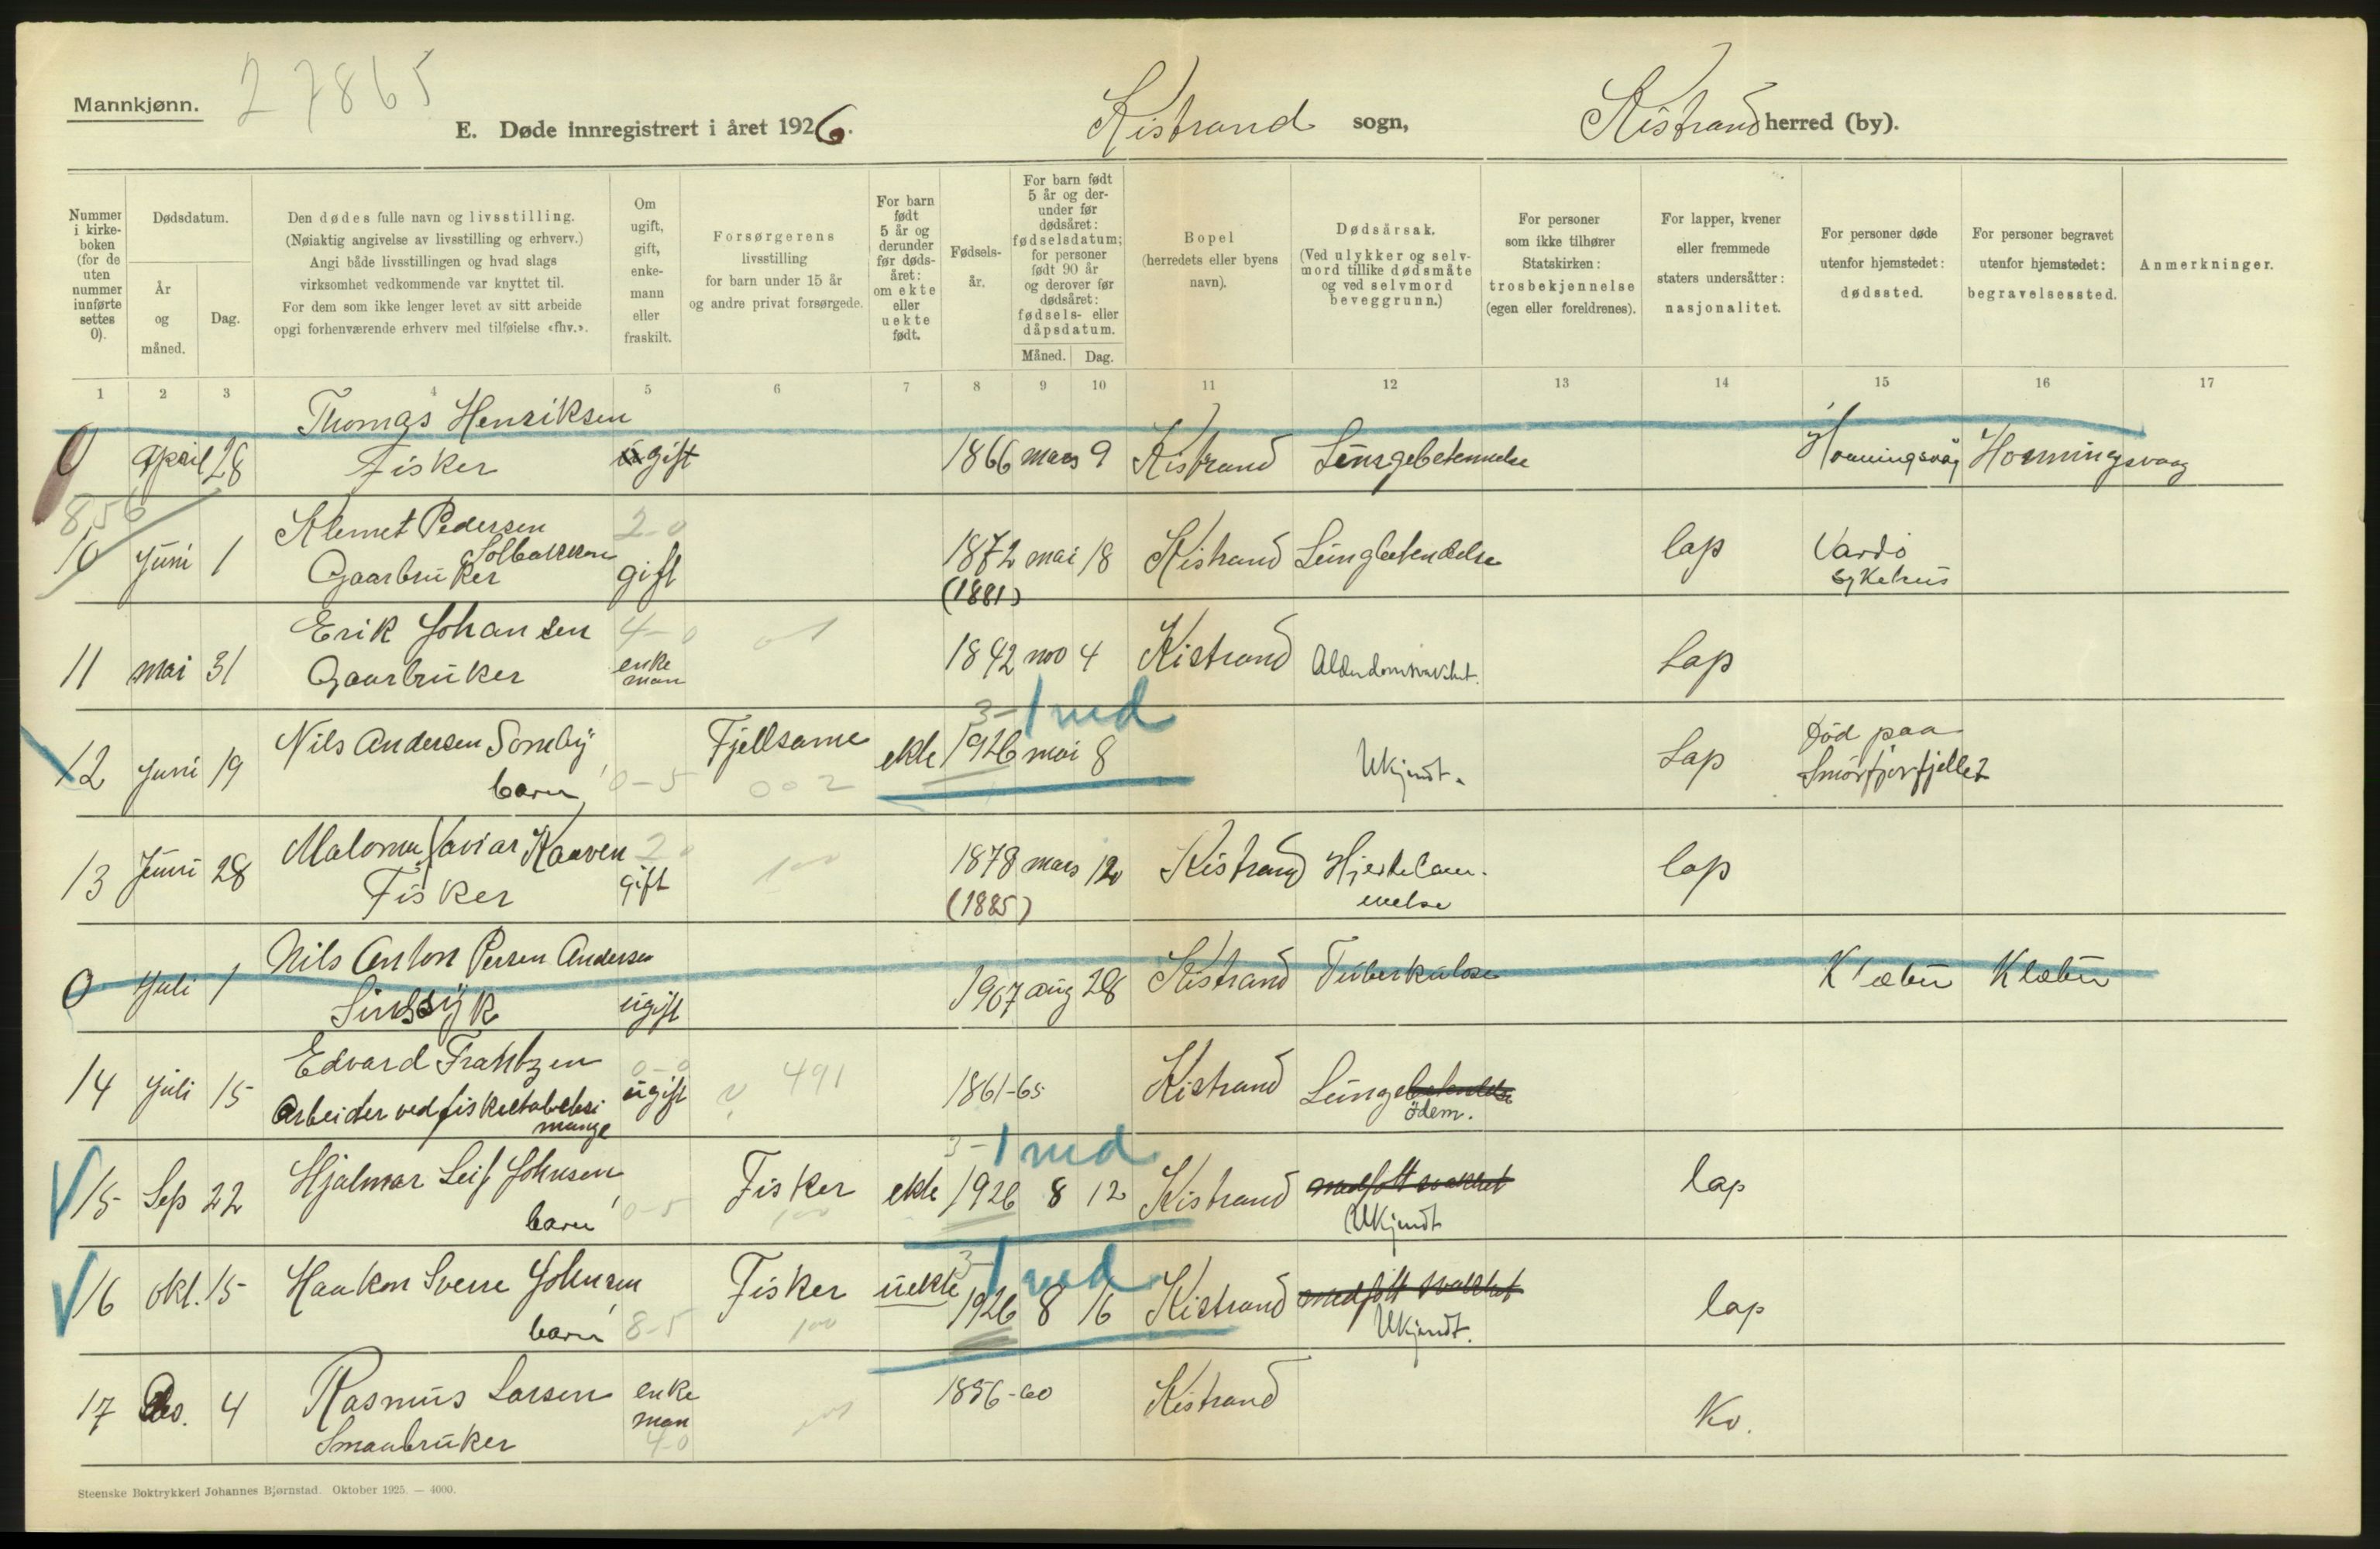 Mannkjønn.
27865
E. Døde innregistrert i året 1926.
Kistrand sogn,
Kistrand herred (by).
Nummer i kirke- boken (for de uten nummer innførte settes 0).
Dødsdatum.
År og måned.
Dag.
Den dødes fulle navn og livsstilling.
(Nøiaktig angivelse av livsstilling og erhverv.)
Angi både livsstillingen og hvad slags
virksomhet vedkommende var knyttet til.
For dem som ikke lenger levet av sitt arbeide
opgi forhenværende erhverv med tilføielse «fhv.».
Om ugift, gift, enke- mann eller fraskilt.
Forsørgerens
livsstilling
for barn under 15 år
og andre privat forsørgede.
For barn født 5 år og derunder før døds- året: om ekte eller uekte født.
Fødsels- år.
For barn født 5 år og der- under før dødsåret: fødselsdatum; for personer født 90 år og derover før dødsåret: fødsels- eller dåpsdatum.
Måned. Dag.
Bopel
(herredets eller byens
navn).
Dødsårsak.
(Ved ulykker og selv-
mord tillike dødsmåte
og ved selvmord
beveggrunn.)
For personer
som ikke tilhører
Statskirken:
trosbekjennelse
(egen eller foreldrenes).
For lapper, kvener
eller fremmede
staters undersåtter:
nasjonalitet.
For personer døde
utenfor hjemstedet:
dødssted.
For personer begravet
utenfor hjemstedet:
begravelsessted.
Anmerkninger.
1 2 3 4 5 6 7 8 9 10 11 12 13 14 15 16 17
Thomas Henriksen
0 April 28 Fisker ugift 1866 mars 9 Kistrand Lungebetennelse Honningsvåg Honningsvaag
856
Klemet Pedersen 2-0
Solbakken
10 Juni 1 Gaarbruker gift 1872 mai 18 Kistrand Lungbetendelse lap Vardö
sykehus
(1881)
Erik Johansen 4-0
11 mai 31 Gaarbruker enke man 1842 nov 4 Kistrand Alderdomsvakhet. Lap
3-1 md
12 Juni 19 Nils Andersen Somby Fjellsame ekte 1926 mai 8 Ukjendt. Lap Död paa
Smörfjorfjellet
barn 0-5 002
Malorna Xaviar Kaaven 2
13 Juni 28 Fisker gift 100 1878 mars 12 Kistrand Hjertelam-
melse lap
(1885)
Nils Anton Persen Andersen
0 Juli 1 Sinssyk ugift 1907 aug 28 Kistrand Tuberkulose Klæbu Klæbu
Edvard Frantzen 0-0
14 Juli 15 Arbeider ved fisketabelsi ugift 491 1861-65 Kistrand Lungebetendelse
mange ödem.
3-1 md
15 Sep 22 Hjalmar Leif Johnsen Fisker ekte 1926 8 12 Kistrand medfött svakhet lap
barn 0-5 100 Ukjendt
3-1 md
16 okt. 15 Haakon Sverre Johnsen Fisker uekte 1926 8 16 Kistrand medfött svakhet lap
barn 8-5 100 Ukjendt.
17 Des. 4 Rasmus Larsen enke
man 1856-60 Kistrand Kv.
Smaabruker 4-0
Steenske Boktrykkeri Johannes Bjørnstad. Oktober 1925. — 4000.